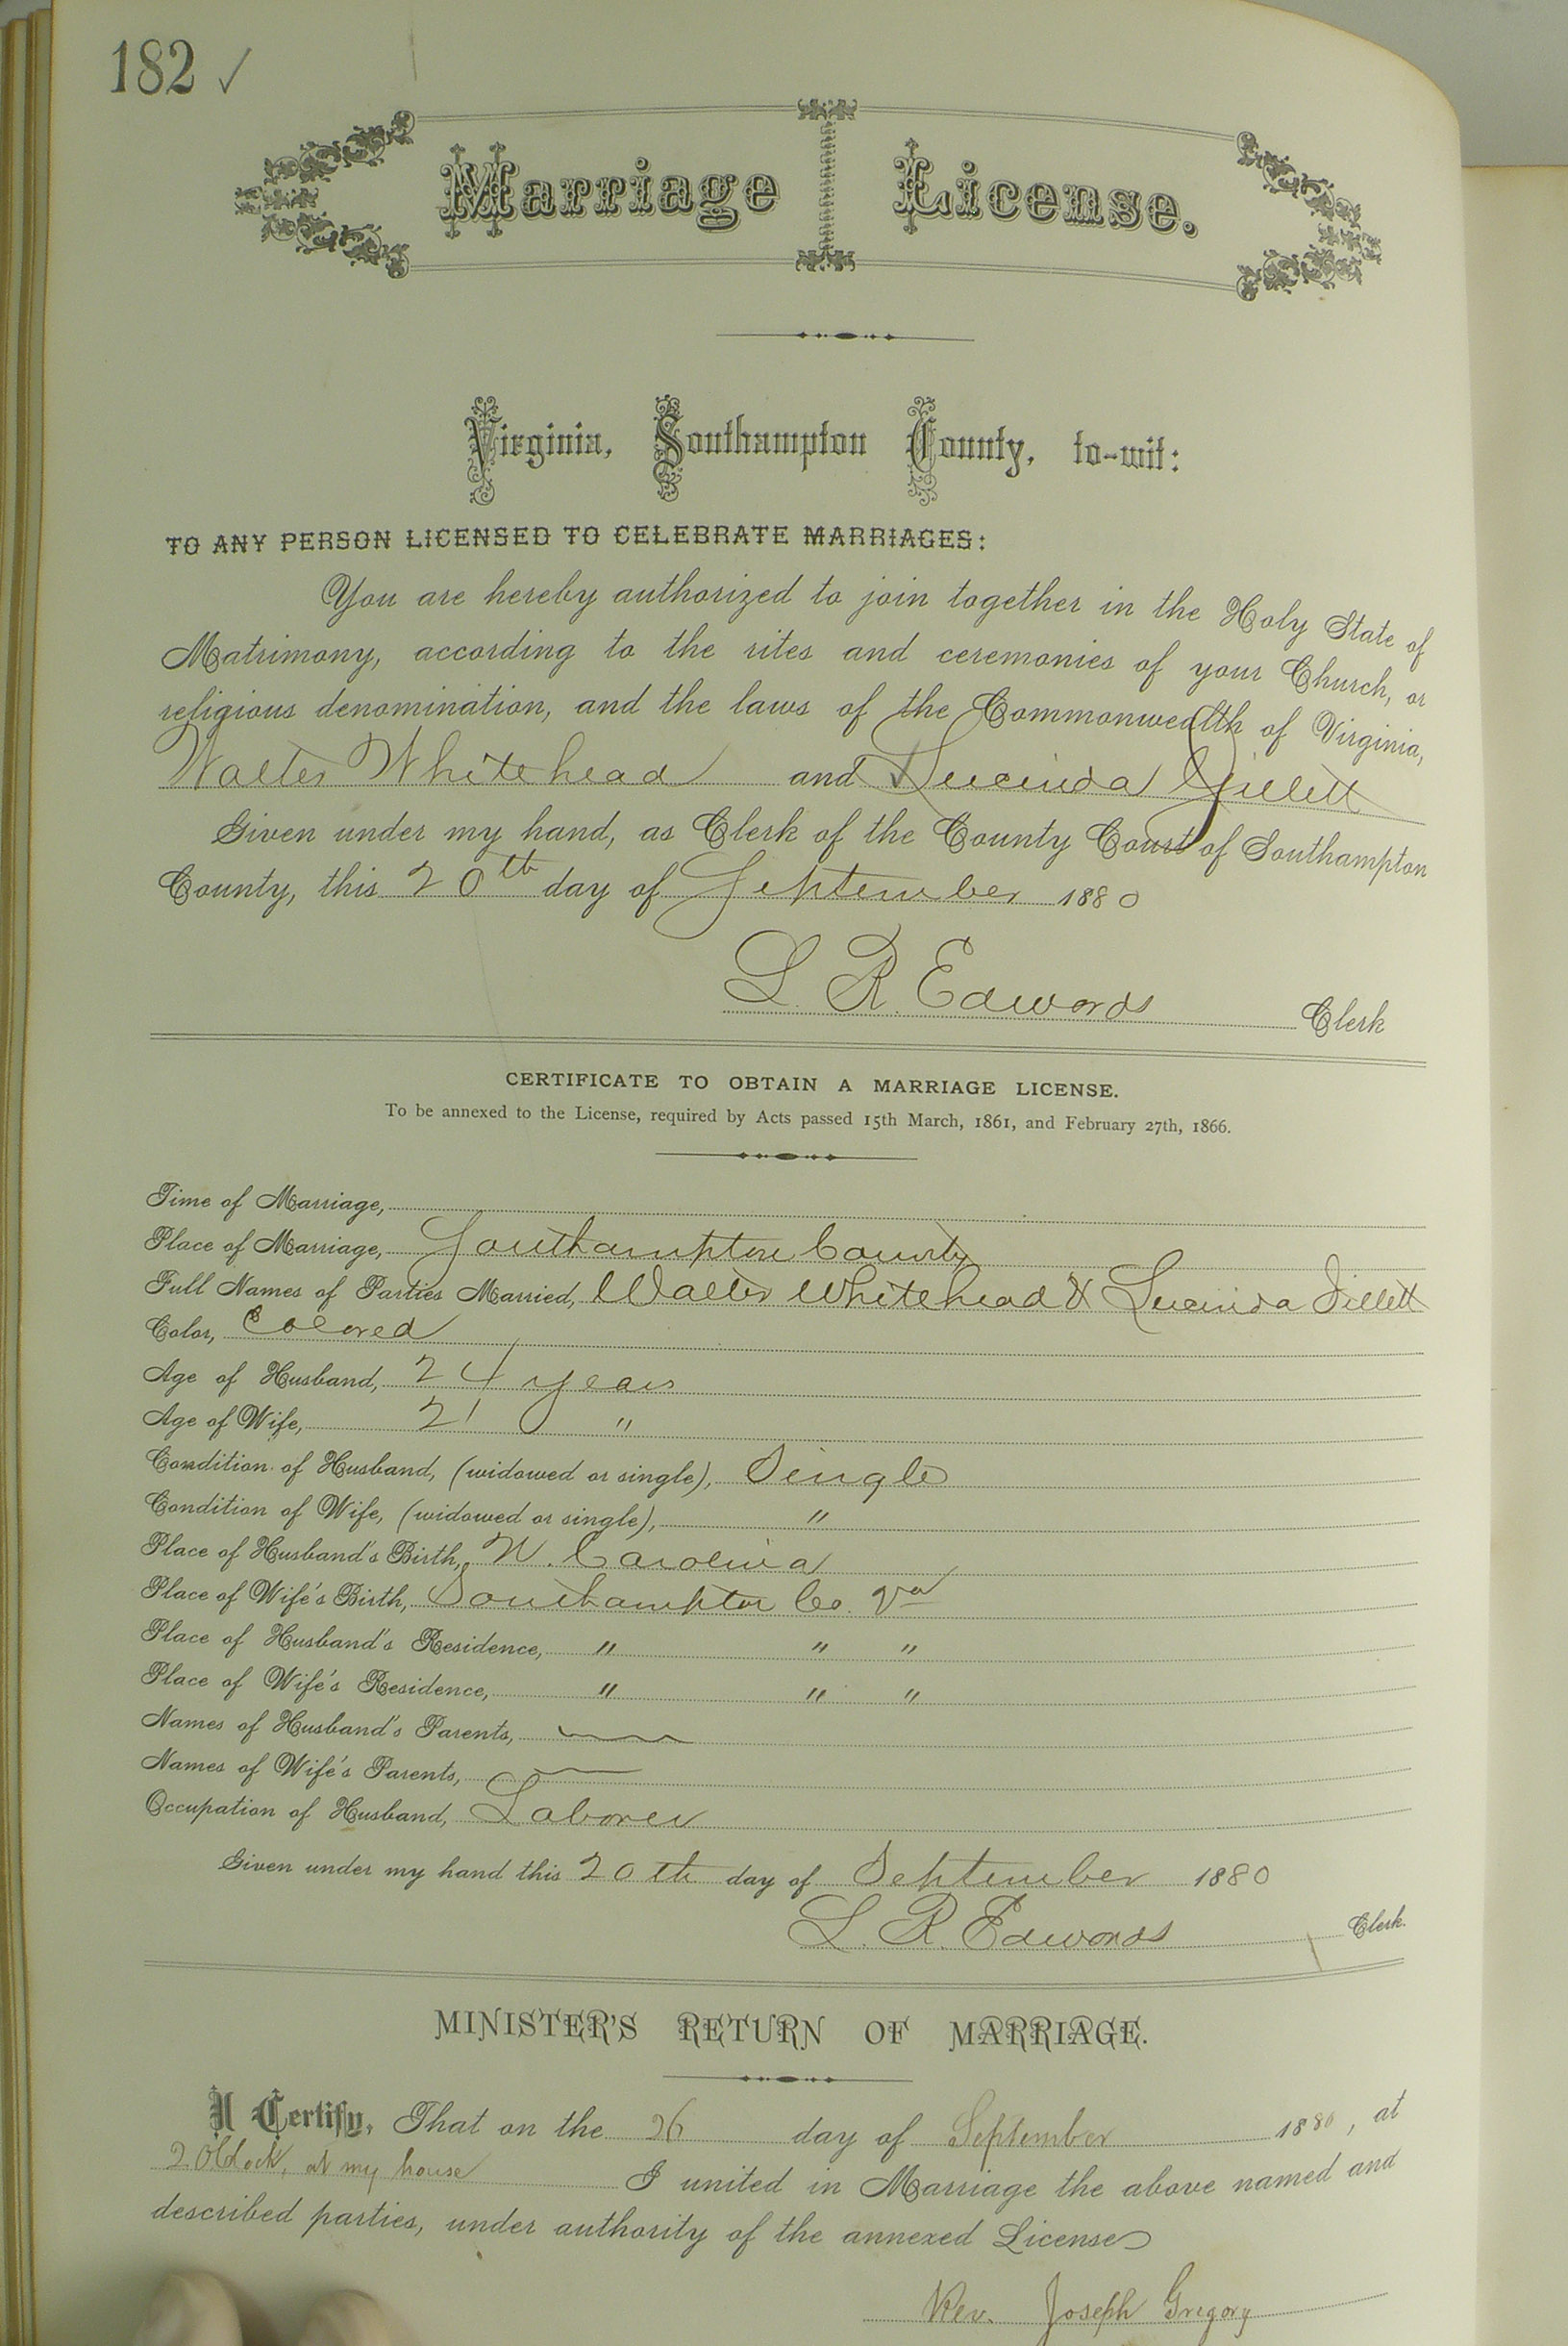 182 ✓
Marriage License.
Virginia, Southampton County, to-wit:
TO ANY PERSON LICENSED TO CELEBRATE MARRIAGES:
You are hereby authorized to join together in the Holy State of
Matrimony, according to the rites and ceremonies of your Church, or
religious denomination, and the laws of the Commonwealth of Virginia,
Walter Whitehead and ✓ Lucinda Gillett
Given under my hand, as Clerk of the County Court of Southampton
County, this 20th day of September 1880
L. R. Edwards Clerk
CERTIFICATE TO OBTAIN A MARRIAGE LICENSE.
To be annexed to the License, required by Acts passed 15th March, 1861, and February 27th, 1866.
Time of Marriage,
Place of Marriage, Southampton County
Full Names of Parties Married, Walter Whitehead & Lucinda Gillett
Color, Colored
Age of Husband, 24 years
Age of Wife, 21 "
Condition of Husband, (widowed or single), Single
Condition of Wife, (widowed or single), "
Place of Husband's Birth, N. Carolina
Place of Wife's Birth, Southampton Co. Va
Place of Husband's Residence, " " "
Place of Wife's Residence, " " "
Names of Husband's Parents,
Names of Wife's Parents,
Occupation of Husband, Laborer
Given under my hand this 20th day of September 1880
L. R. Edwards Clerk.
MINISTER'S RETURN OF MARRIAGE.
I Certify, That on the 26 day of September 1880, at
2 O'Clock, at my house I united in Marriage the above named and
described parties, under authority of the annexed License
Rev. Joseph Gregory